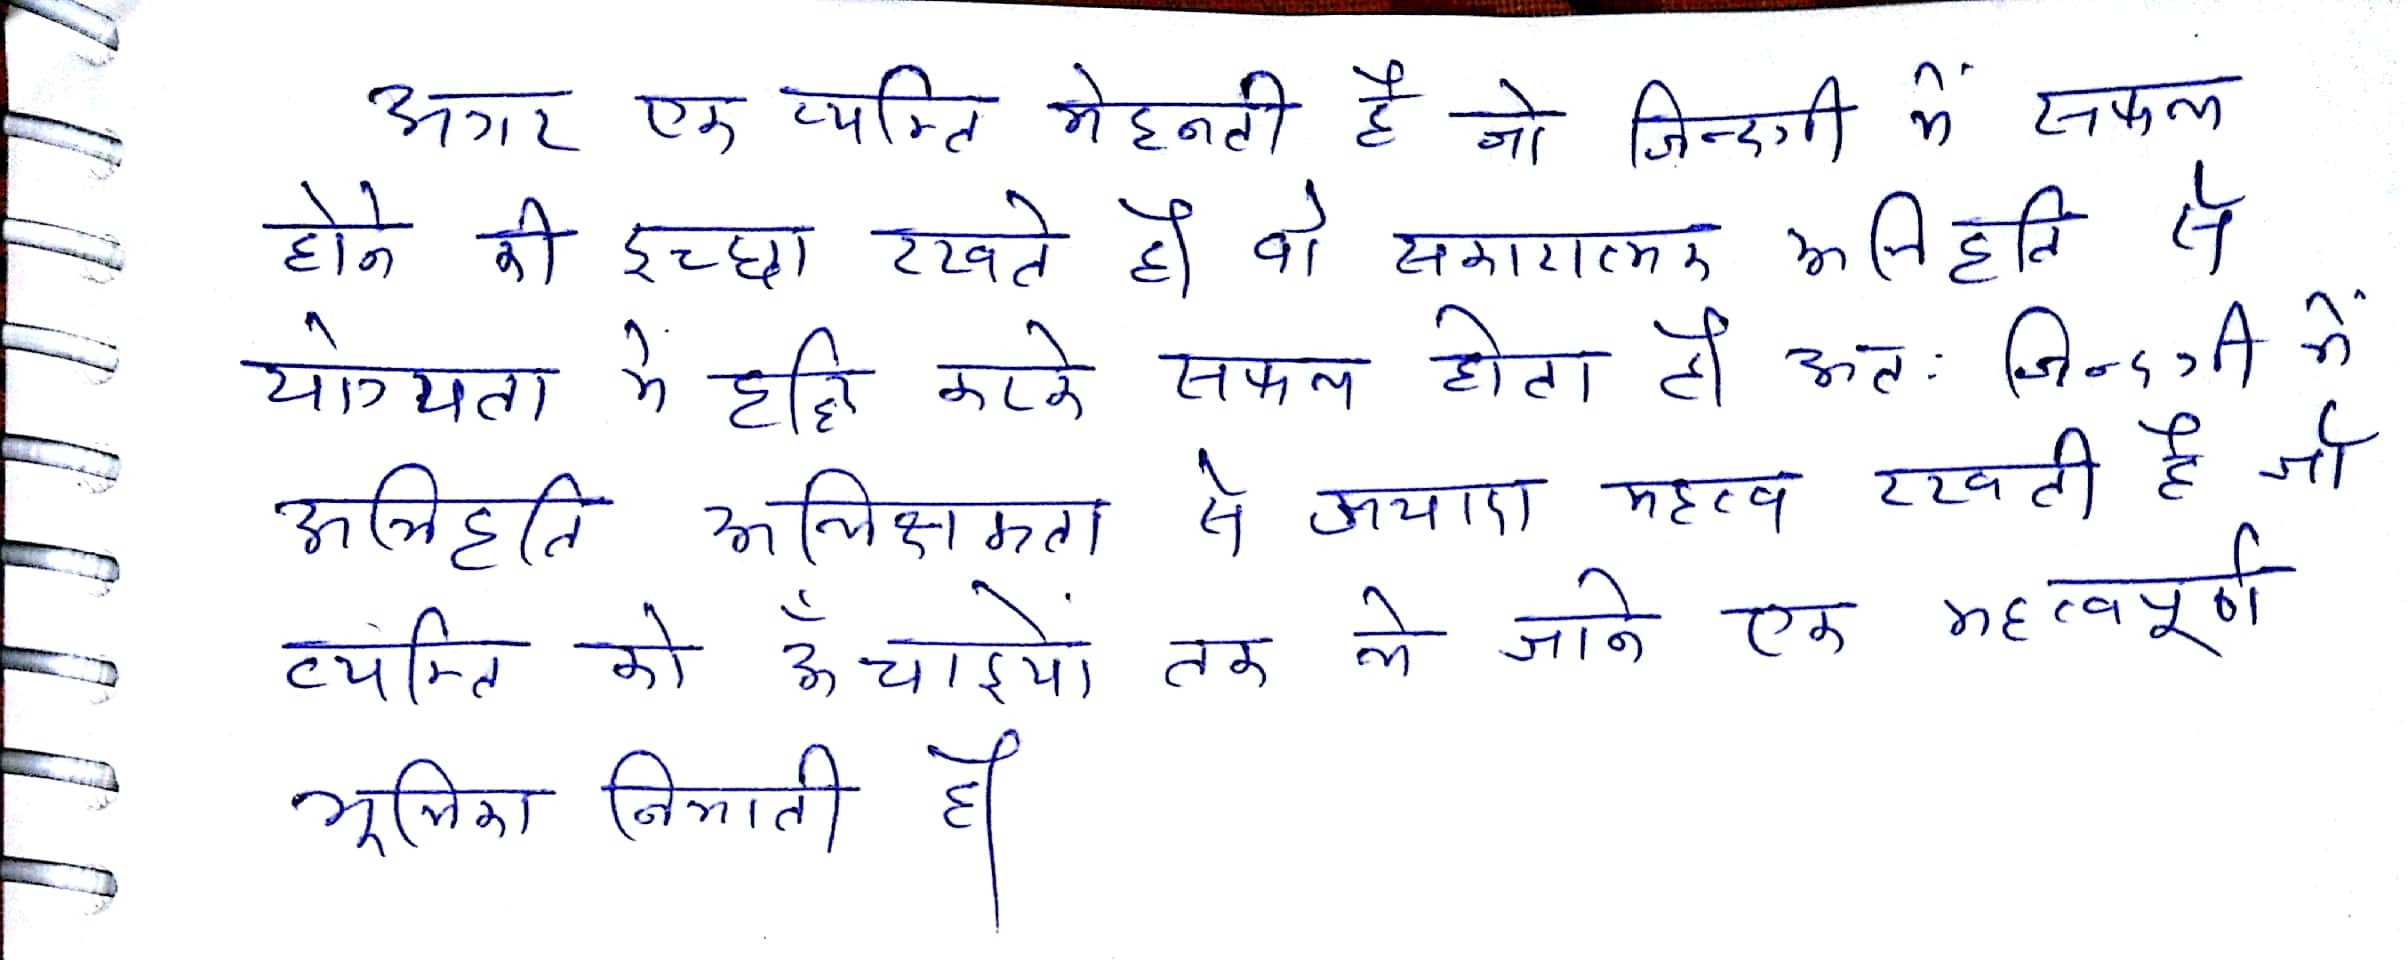 अगर एक व्यक्ति मेहनती है जो जिन्दगी में सफल
होने की इच्छा रखते है। वो सकारात्मक अभिवृति से
योग्यता में वृद्धि करके सफल होता है। अतः जिन्दगी में
अभिवृति अभिक्षमता से ज्यादा महत्व रखती है जो
व्यक्ति को ऊँचाइयों तक ले जाने एक महत्वपूर्ण
भूमिका निभाती है।